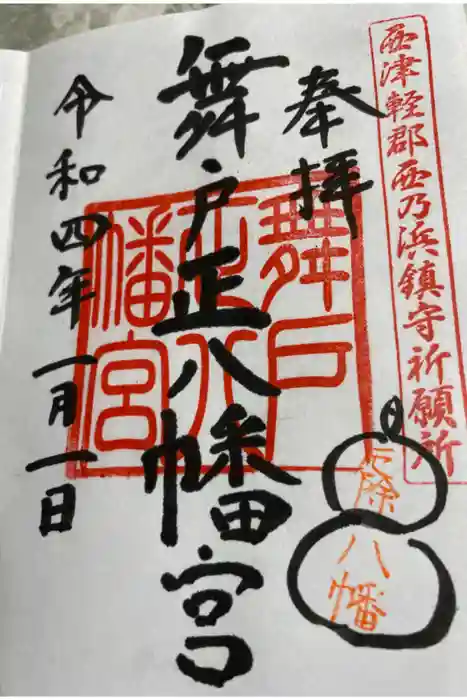 西津軽郡西乃浜鎮守祈願所
奉拝
舞戸正八幡宮
舞戸正八幡宮
令和四年一月一日
厄除
八幡